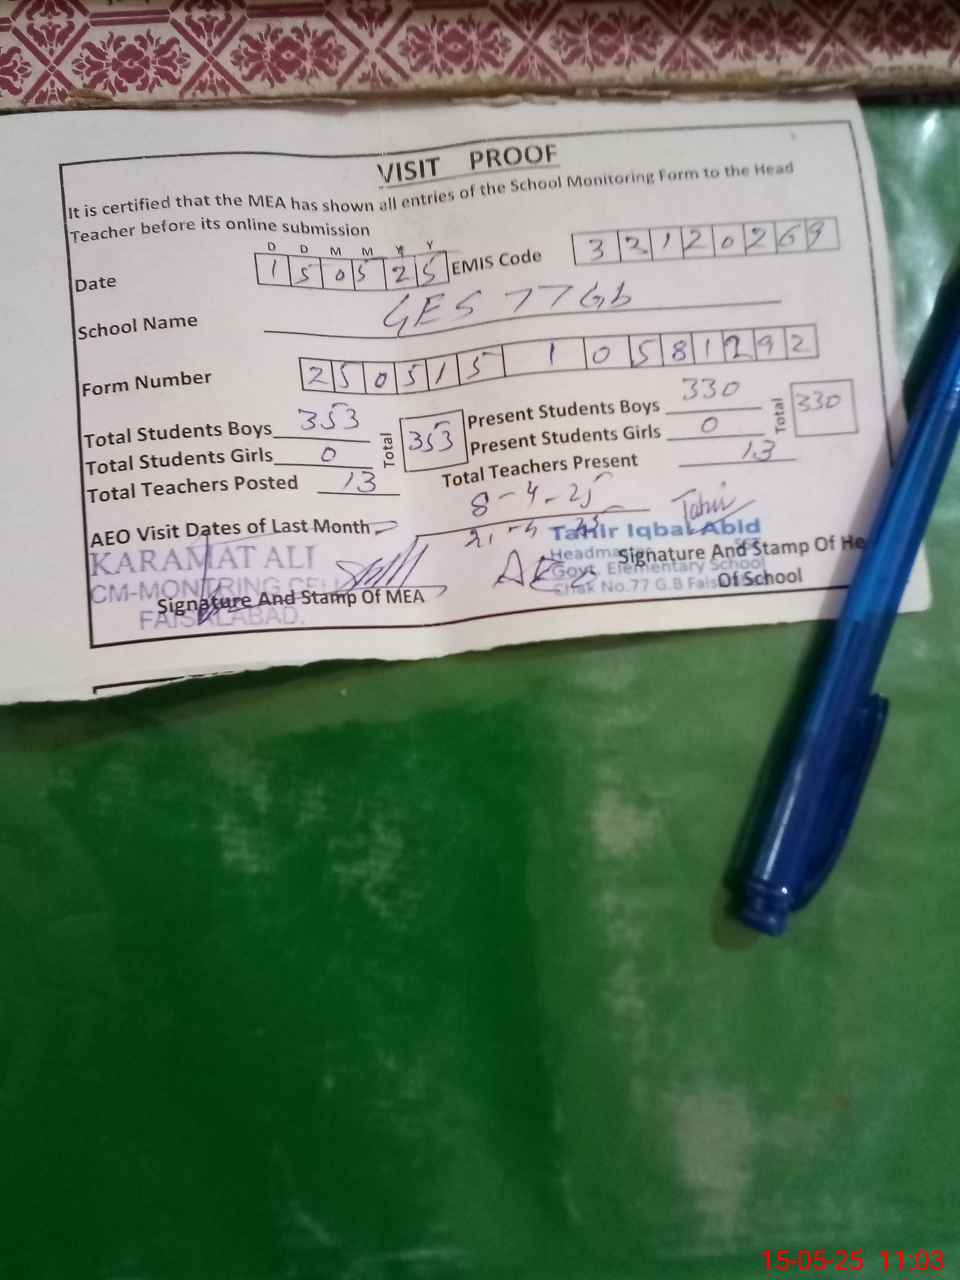 VISIT PROOF
It is certified that the MEA has shown all entries of the School Monitoring Form to the Head
Teacher before its online submission
D D M M Y Y
Date 1 5 0 5 2 5 EMIS Code 3 3 1 2 0 2 6 9
School Name GES 77 Gb
Form Number 2 5 0 5 1 5 1 0 5 8 1 2 9 2
Total Students Boys 353 Total 353 Present Students Boys 330 Total 330
Total Students Girls 0 Present Students Girls 0
Total Teachers Posted 13 Total Teachers Present 13
AEO Visit Dates of Last Month 8-4-25
Tahir
Tahir Iqbal Abid
KARAMAT ALI
Headma
Signature And Stamp Of He
CM-MONTRING CELL
Govt. Elementary School
Signature And Stamp Of MEA
Chak No.77 G.B Fais
Of School
FAISALABAD.
15-05-25 11:03